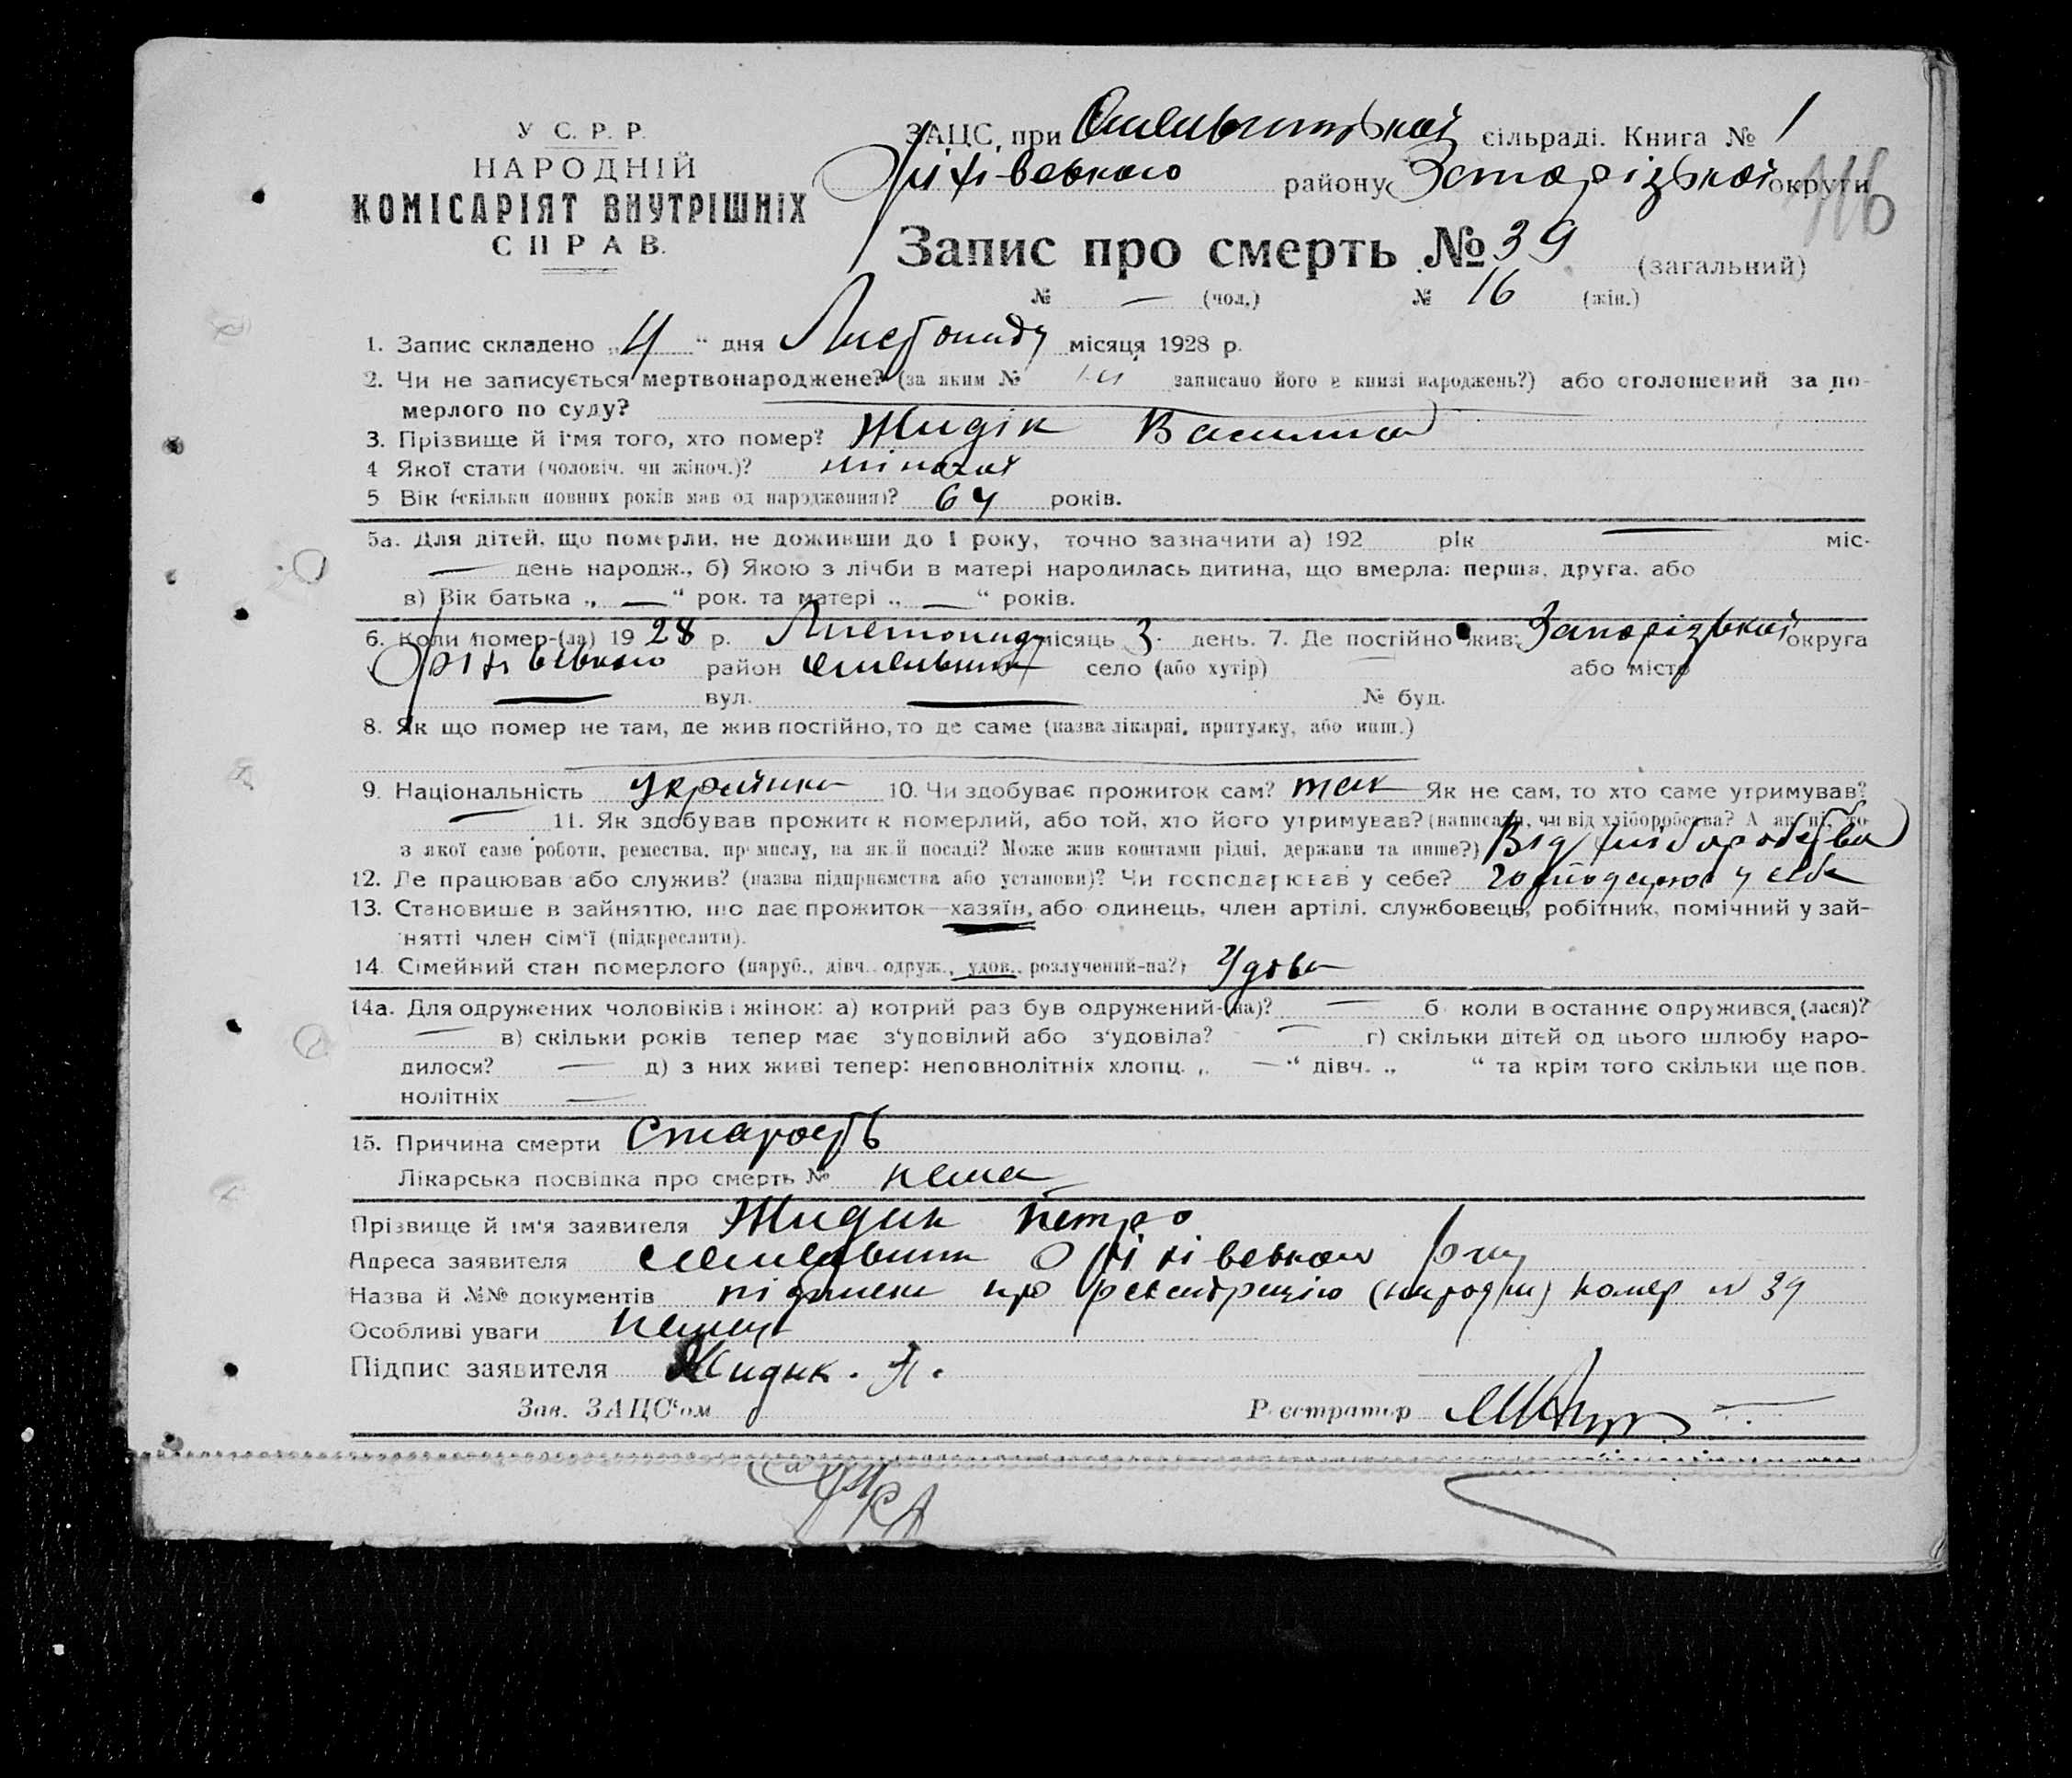 У С. Р. Р.
НАРОДНІЙ
КОМІСАРІЯТ ВНУТРІШНІХ
СПРАВ.
ЗАЦС, при Омельницькой сільраді. Книга № 1
Оріхівського району Запорізькой округи
116
Запис про смерть № 39 (загальний)
№ — (чол.) № 16 (жін.)
1. Запис складено „4“ дня Листопаду місяця 1928 р.
2. Чи не записується мертвонароджене? (за яким № записано його в книзі народжень?) або оголошений за по-
мерлого по суду?
3. Прізвище й ім'я того, хто помер? Жидік
4 Якої стати (чоловіч. чи жіноч.)? жіночої
5 Вік (скільки повних років мав од народження)? 64 років.
5а. Для дітей, що померли, не доживши до 1 року, точно зазначити а) 192 рік — міс-
— день народж., б) Якою з лічби в матері народилась дитина, що вмерла: перша, друга, або
в) Вік батька „ — “ рок. та матері „ — “ років.
6. Коли помер-(ла) 1928 р. Листопаду місяць 3 день. 7. Де постійно жив: Запорізькой округа
Оріхівського район Омельник село (або хутір) — або місто
— вул. — № буд.
8. Як що помер не там, де жив постійно, то де саме (назва лікарні, притулку, або инш.)
9. Національність Українка 10. Чи здобуває прожиток сам? так Як не сам, то хто саме утримував?
— 11. Як здобував прожиток померлий, або той, хто його утримував? (написати, чи від хліборобства? А як ні, то
з якої саме роботи, ремества, промислу, на якій посаді? Може жив коштами рідні, держави та инше?) Від хліборобства
12. Де працював або служив? (назва підприємства або установи)? Чи господарював у себе? господарює у себе
13. Становище в зайняттю, що дає прожиток—хазяїн, або одинець, член артілі, службовець, робітник, помічний у зай-
нятті член сім'ї (підкреслити).
14. Сімейний стан померлого (паруб., дівч. одруж., удов., розлучений-на?) Удова
14а. Для одружених чоловіків і жінок: а) котрий раз був одружений-(на)? — б коли востаннє одружився (лася)?
— в) скільки років тепер має з'удовілий або з'удовіла? — г) скільки дітей од цього шлюбу наро-
дилося? — д) з них живі тепер: неповнолітніх хлопц. „ — “ дівч. „ “ та крім того скільки ще пов.
нолітніх —
15. Причина смерти Старость
Лікарська посвідка про смерть № нема
Прізвище й ім'я заявителя Жидик Петро
Адреса заявителя Омельник Оріхівського р-ну
Назва й №№ документів про номер № 39
Особливі уваги немає
Підпис заявителя Жидик. П.
Зав. ЗАЦС'ом Реєстратор